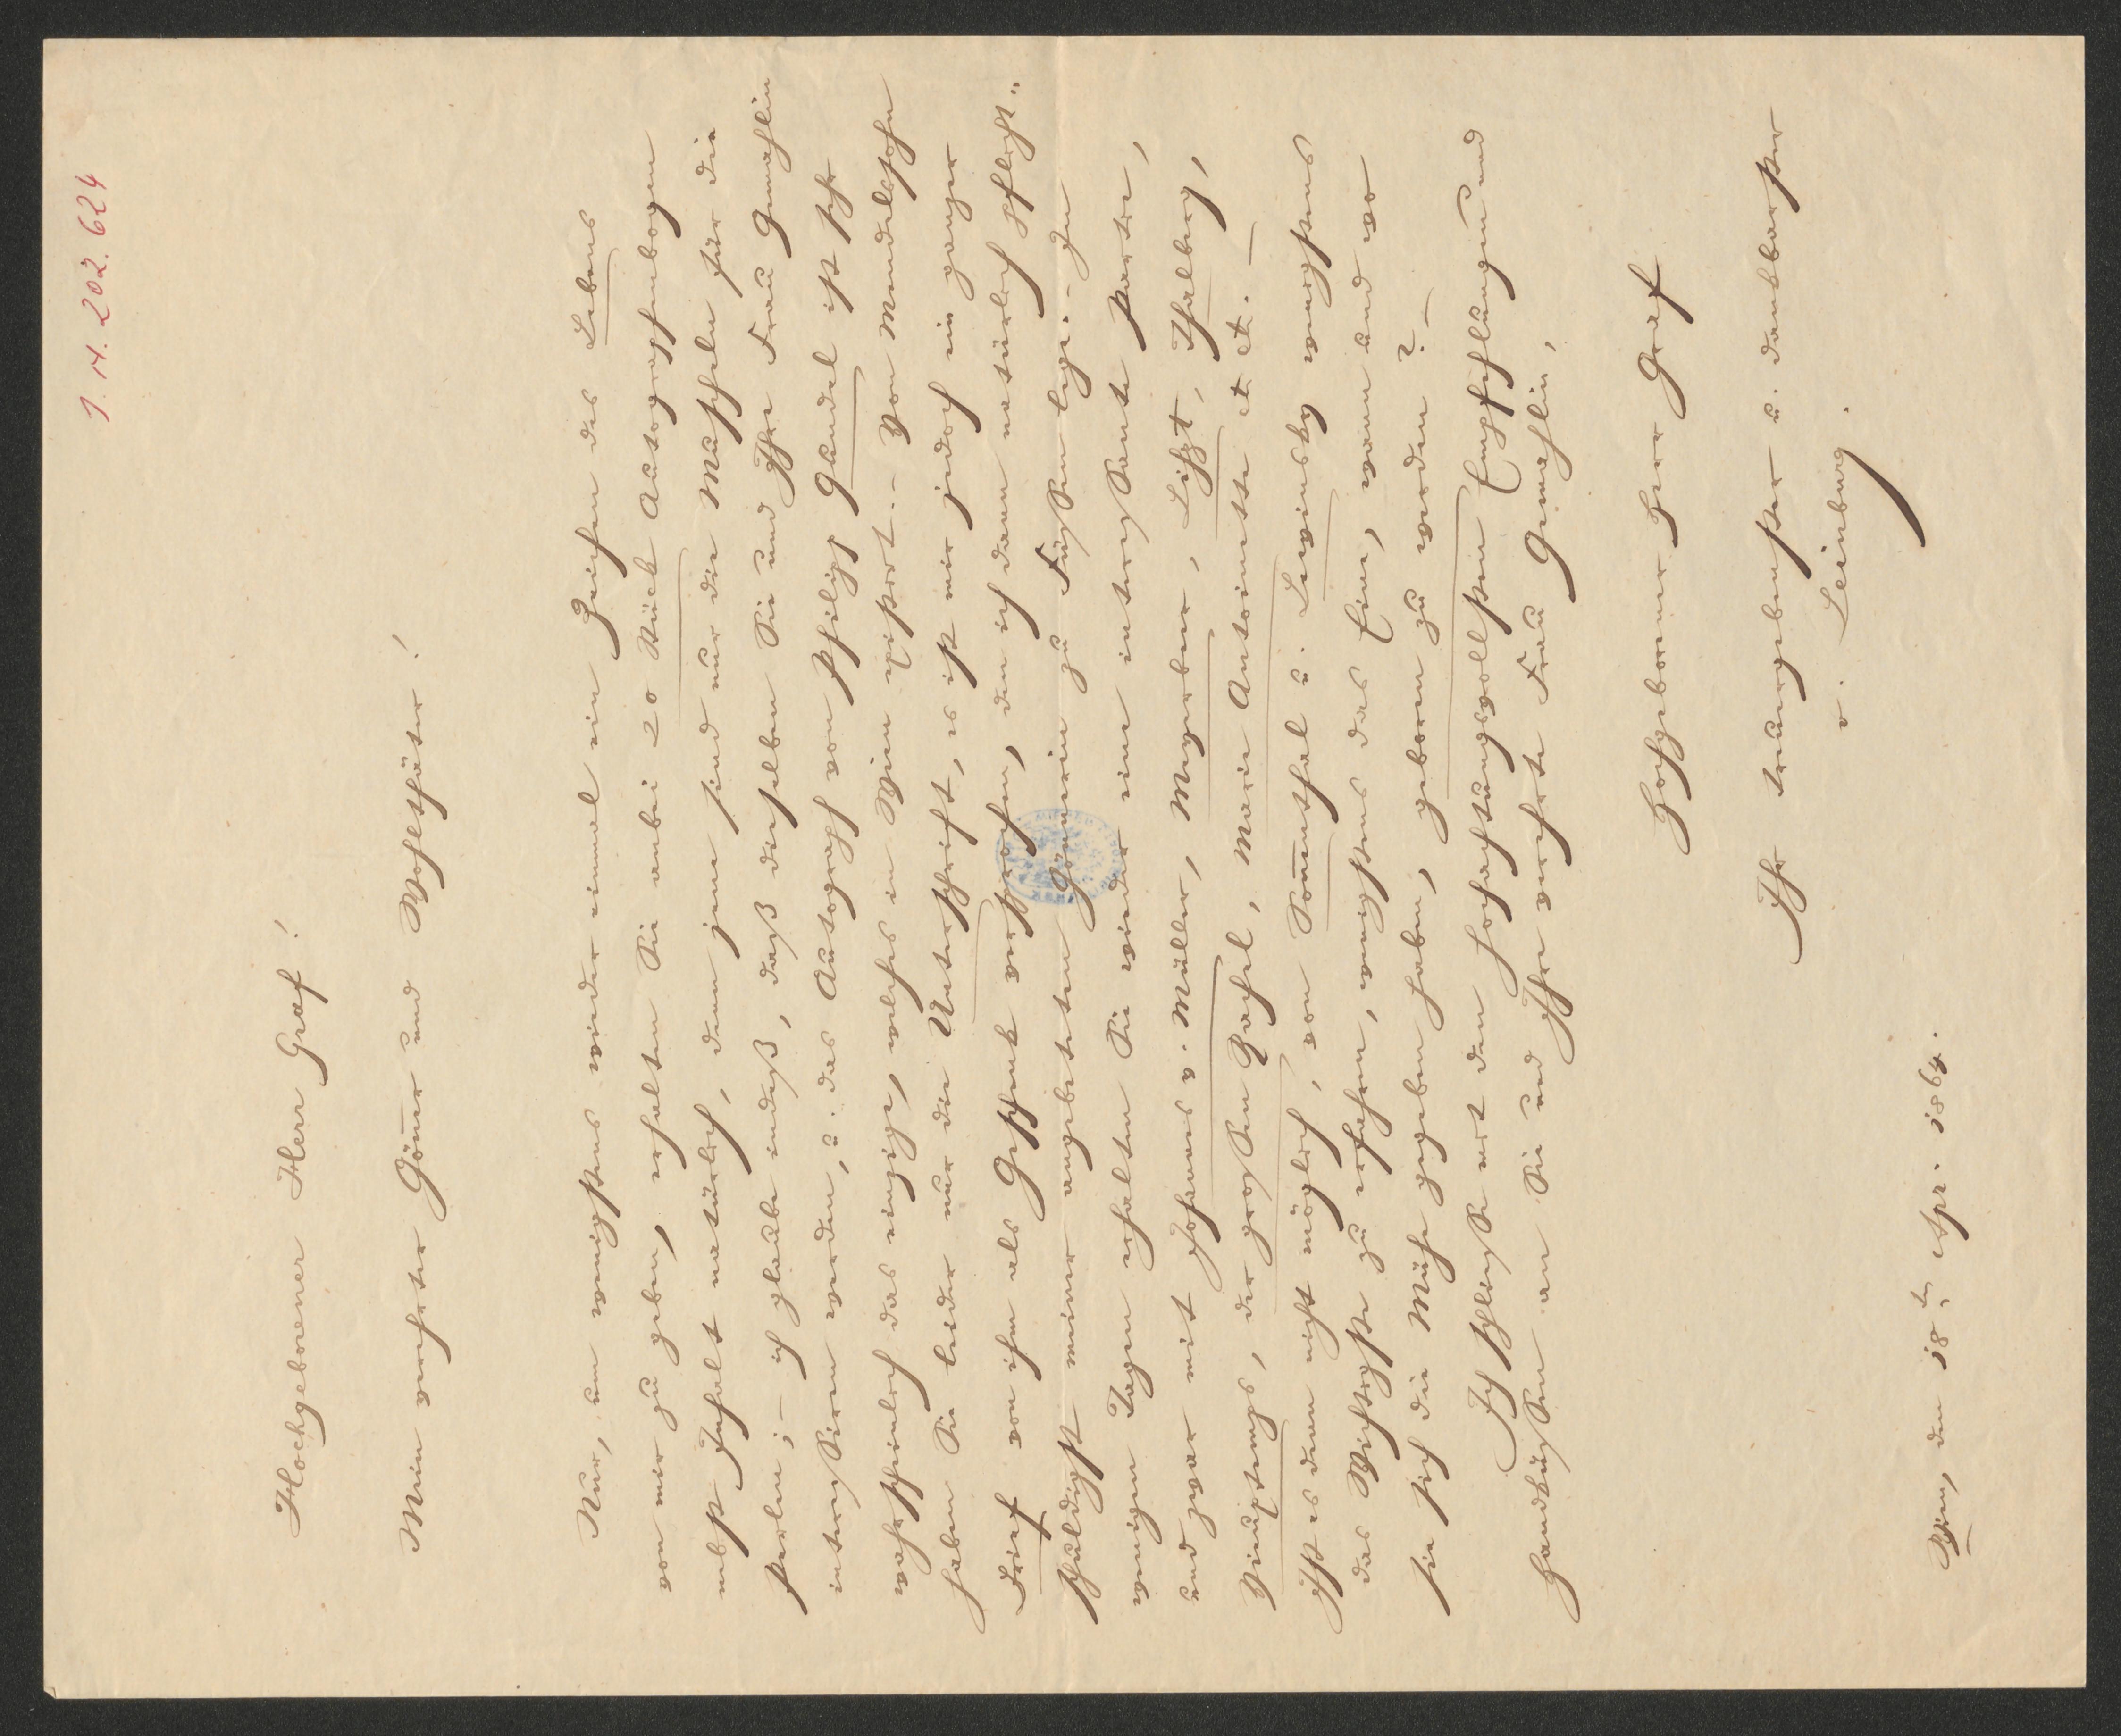 I. N. 202.624
Hochgeborener Herr Graf!
Mein verehrter Gönner und Wohlthäter!
Nur, um wenigstens wieder einmal ein Zeichen des Lebens
von mir zu geben, erhalten Sie anbei 20 Stück Autographenbogen
nebst Inhalt natürlich, denn jene sind nur die Muscheln für die
Perlen; – ich glaube indeß, daß dieselben Sie und Ihre Frau Gemahlin
interessiren werden, u. das Autograph von Philipp Händel ist sehr
wahrscheinlich das einzige, welches in Wien existirt. – Von Mendelssohn
haben Sie leider nur die Unterschrift, es ist mir jedoch ein ganzer
Brief von ihm als Geschenk versprochen, den ich dann natürlich pflicht-
schuldigst meiner angebeteten Gönnerin zu Füßen lege. – In
wenigen Tagen erhalten Sie wieder eine interessante Partie,
und zwar mit Johannes v. Müller, Meyerbeer, Liszt, Thalberg,
Vieuxtemps, der großen Rachel, Marie Antoinette etc. etc. –
Ist es denn nicht möglich, von Sonnenthal u. Lewinsky wenigstens
das Wichtigste zu erfahren, wenigstens das Eine, wann und wo
sie sich die Mühe gegeben haben, geboren zu werden? –
Ich schließe mit den hochachtungsvollsten Empfehlungen und
Handküssen an Sie und Ihre verehrte Frau Gemahlin,
Hochgeborner Herr Graf
Ihr treuergebenster u. dankbarster
v. Leinburg.
Wien, den 18ten Apr. 1864.